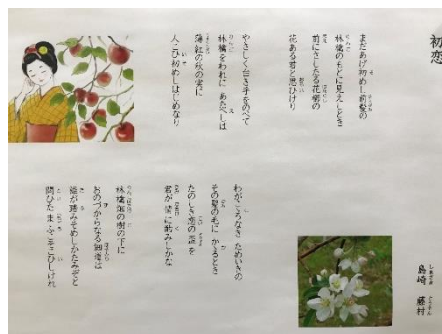 初恋
まだあげ初めし前髪の
林檎のもとに見えしとき
前にさしたる花櫛の
花ある君と思ひけり
やさしく白き手をのべて
林檎をわれにあたへしは
薄紅の秋の実に
人こひ初めしはじめなり
わがこゝろなきためいきの
その髪の毛にかゝるとき
たのしき恋の盃を
君が情に酌みしかな
林檎畑の樹の下に
おのづからなる細道は
誰が踏みそめしかたみぞと
問ひたまふこそこひしけれ
島崎 藤村